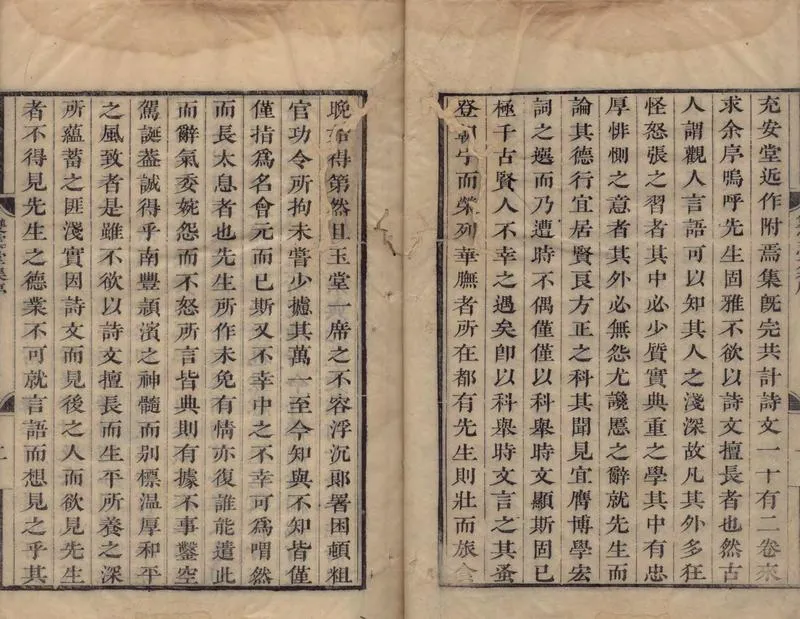 充安堂近作附焉集旣完共計詩文一十有二卷來
求余序嗚呼先生固雅不欲以詩文擅長者也然古
人謂觀人言語可以知其人之淺深故凡其外多狂
怪怒張之習者其中必少質實典重之學其中有忠
厚悱惻之意者其外必無怨尤讒慝之辭就先生而
論其德行宜居賢良方正之科其聞見宜膺博學宏
詞之選而乃遭時不偶僅僅以科舉時文顯斯固已
極千古賢人不幸之遇矣卽以科舉時文言之其蚤
登 而榮列華膴者所在都有先生則壯而旅食
晚而得第然且玉堂一席之不容浮沉郞署困頓粗
官功令所拘未嘗少攄其萬一至今知與不知皆僅
僅指爲名會元而已斯又不幸中之不幸可爲喟然
而長太息者也先生所作未免有情亦復誰能遣此
而辭氣委婉怨而不怒所言皆典則有據不事鑿空
駕誕葢誠得乎南豐潁濱之神髓而别標温厚和平
之風致者是雖不欲以詩文擅長而生平所養之深
所蘊蓄之匪淺實因詩文而見後之人而欲見先生
者不得見先生之德業不可就言語而想見之乎其